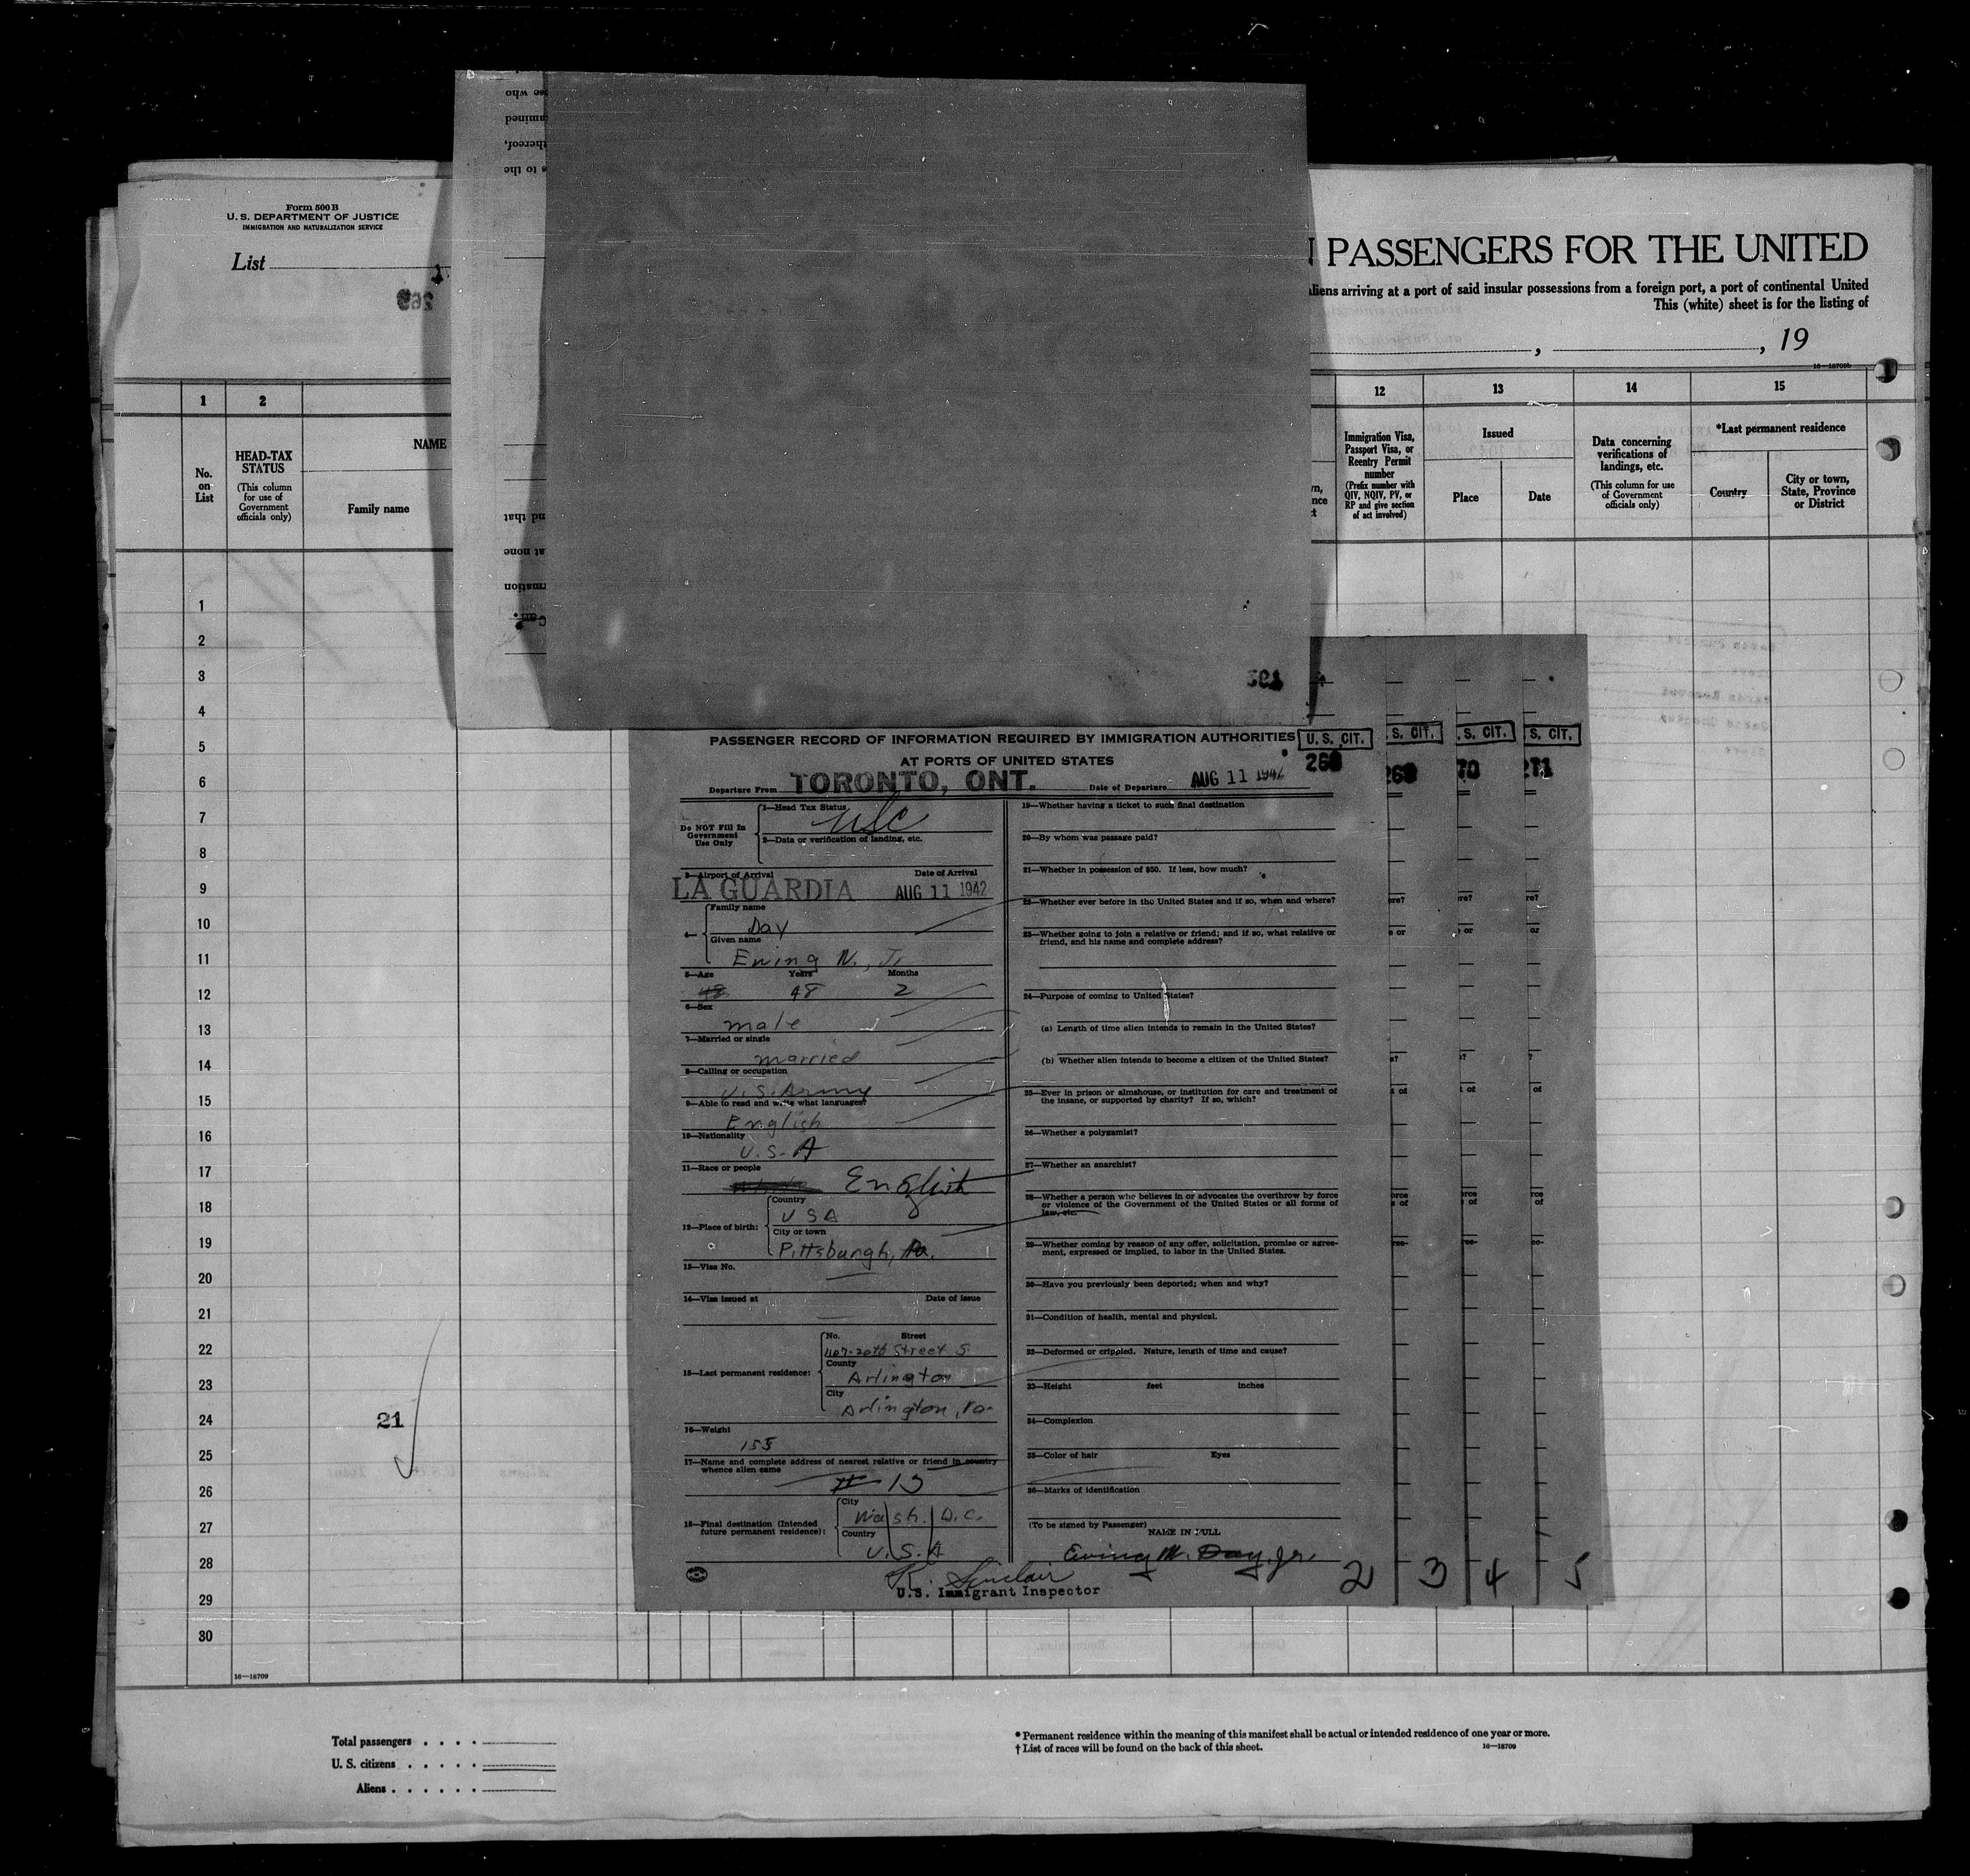 Form 500 B
U. S. DEPARTMENT OF JUSTICE
IMMIGRATION AND NATURALIZATION SERVICE
List
PASSENGERS FOR THE UNITED
aliens arriving at a port of said insular possessions from a foreign port, a port of continental United
This (white) sheet is for the listing of
, , 19
16—18709b
1 2 12 13 14 15
No. on List
HEAD-TAX STATUS
(This column for use of Government officials only)
NAME
Family name
Immigration Visa, Passport Visa, or Reentry Permit number
(Prefix number with QIV, NQIV, PV, or RP and give section of act involved)
Issued
Place
Date
Data concerning verifications of landings, etc.
(This column for use of Government officials only)
*Last permanent residence
Country
City or town, State, Province or District
1
2
3
4
5
6
7
8
9
10
11
12
13
14
15
16
17
18
19
20
21
22
23
24
25
26
27
28
29
30
21
16—18709
PASSENGER RECORD OF INFORMATION REQUIRED BY IMMIGRATION AUTHORITIES
AT PORTS OF UNITED STATES
U. S. CIT. S. CIT. . S. CIT. S. CIT.
268 269 70 271
Departure From TORONTO, ONT. Date of Departure AUG 11 1942
Do NOT Fill In Government Use Only
1—Head Tax Status
USC
2—Data or verification of landing, etc.
3—Airport of Arrival Date of Arrival
LA GUARDIA AUG 11 1942
4— Family name
Day
Given name
Ewing N., Jr
5—Age Years Months
48 48 2
6—Sex
male
7—Married or single
married
8—Calling or occupation
U. S. Army
9—Able to read and write what languages?
English
10—Nationality
U. S. A
11—Race or people
English
12—Place of birth:
Country
U S A
City or town
Pittsburgh, Pa.
13—Visa No.
14—Visa issued at Date of issue
15—Last permanent residence:
No. Street
1107-20th Street S.
County
Arlington
City
Arlington, Va.
16—Weight
155
17—Name and complete address of nearest relative or friend in country whence alien came
# 15
18—Final destination (Intended future permanent residence):
City
Wash. D.C.
Country
U.S.A
19—Whether having a ticket to such final destination
20—By whom was passage paid?
21—Whether in possession of $50. If less, how much?
22—Whether ever before in the United States and if so, when and where?
23—Whether going to join a relative or friend; and if so, what relative or friend, and his name and complete address?
24—Purpose of coming to United States?
(a) Length of time alien intends to remain in the United States?
(b) Whether alien intends to become a citizen of the United States?
25—Ever in prison or almshouse, or institution for care and treatment of the insane, or supported by charity? If so, which?
26—Whether a polygamist?
27—Whether an anarchist?
28—Whether a person who believes in or advocates the overthrow by force or violence of the Government of the United States or all forms of law, etc.
29—Whether coming by reason of any offer, solicitation, promise or agreement, expressed or implied, to labor in the United States.
30—Have you previously been deported; when and why?
31—Condition of health, mental and physical.
32—Deformed or crippled. Nature, length of time and cause?
33—Height feet inches
34—Complexion
35—Color of hair Eyes
36—Marks of identification
(To be signed by Passenger)
NAME IN FULL
Ewing N. Day, Jr.
2 3 4 5
R. Sinclair
U.S. Immigrant Inspector
Total passengers
U. S. citizens
Aliens
* Permanent residence within the meaning of this manifest shall be actual or intended residence of one year or more.
† List of races will be found on the back of this sheet.
16—18709